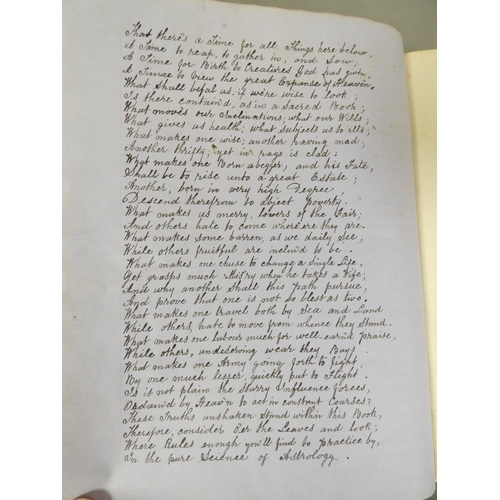 That there's a Time for all Things here below
A Time to reap, to gather in, and Sow;
A Time for Birth to Creatures God has given,
A Timae to View the great Expanse of Heaven.
What Shall befal us, if we're wise to look;
Is there contain'd, as in a Sacred Book;
What moves our Inclinations; what our Wills;
What gives us health; what subjects us to ills;
What makes one wise; another raving mad;
Another thrifty, yet in rags is clad:
What makes one Born a begger, and his Fate,
Shall be to rise unto a great Estate;
Another, born in very high Degree
Descend therefrom to abject Poverty.
What makes us merry, lovers of the Fair;
And others hate to come where'ere they are.
What makes some barren, as we daily See,
While others fruitful are inclin'd to be.
What makes one chuse to change a Single Life.
Get grasps much Mis'ry when he takes a Wife;
And why another shall this Path pursue,
And prove that one is not so blest as two.
What makes one travel both by Sea and Land
While others, hate to move from whence they Stand.
What makes one labour much for well-earn'd Praise,
While others, undeserving wear they Bays
What makes one Army going forth to fight
By one much lesser, quickly put to Flight.
Is is not plain the Starry Influence forces,
Ordain'd by Heav'n to act in constant Courses?
These Truths unshaken Stand within this Book,
Therefore, consider o'er the Leaves and look;
Where Rules enough you'll find to practice by,
In the pure Science of Astrology.